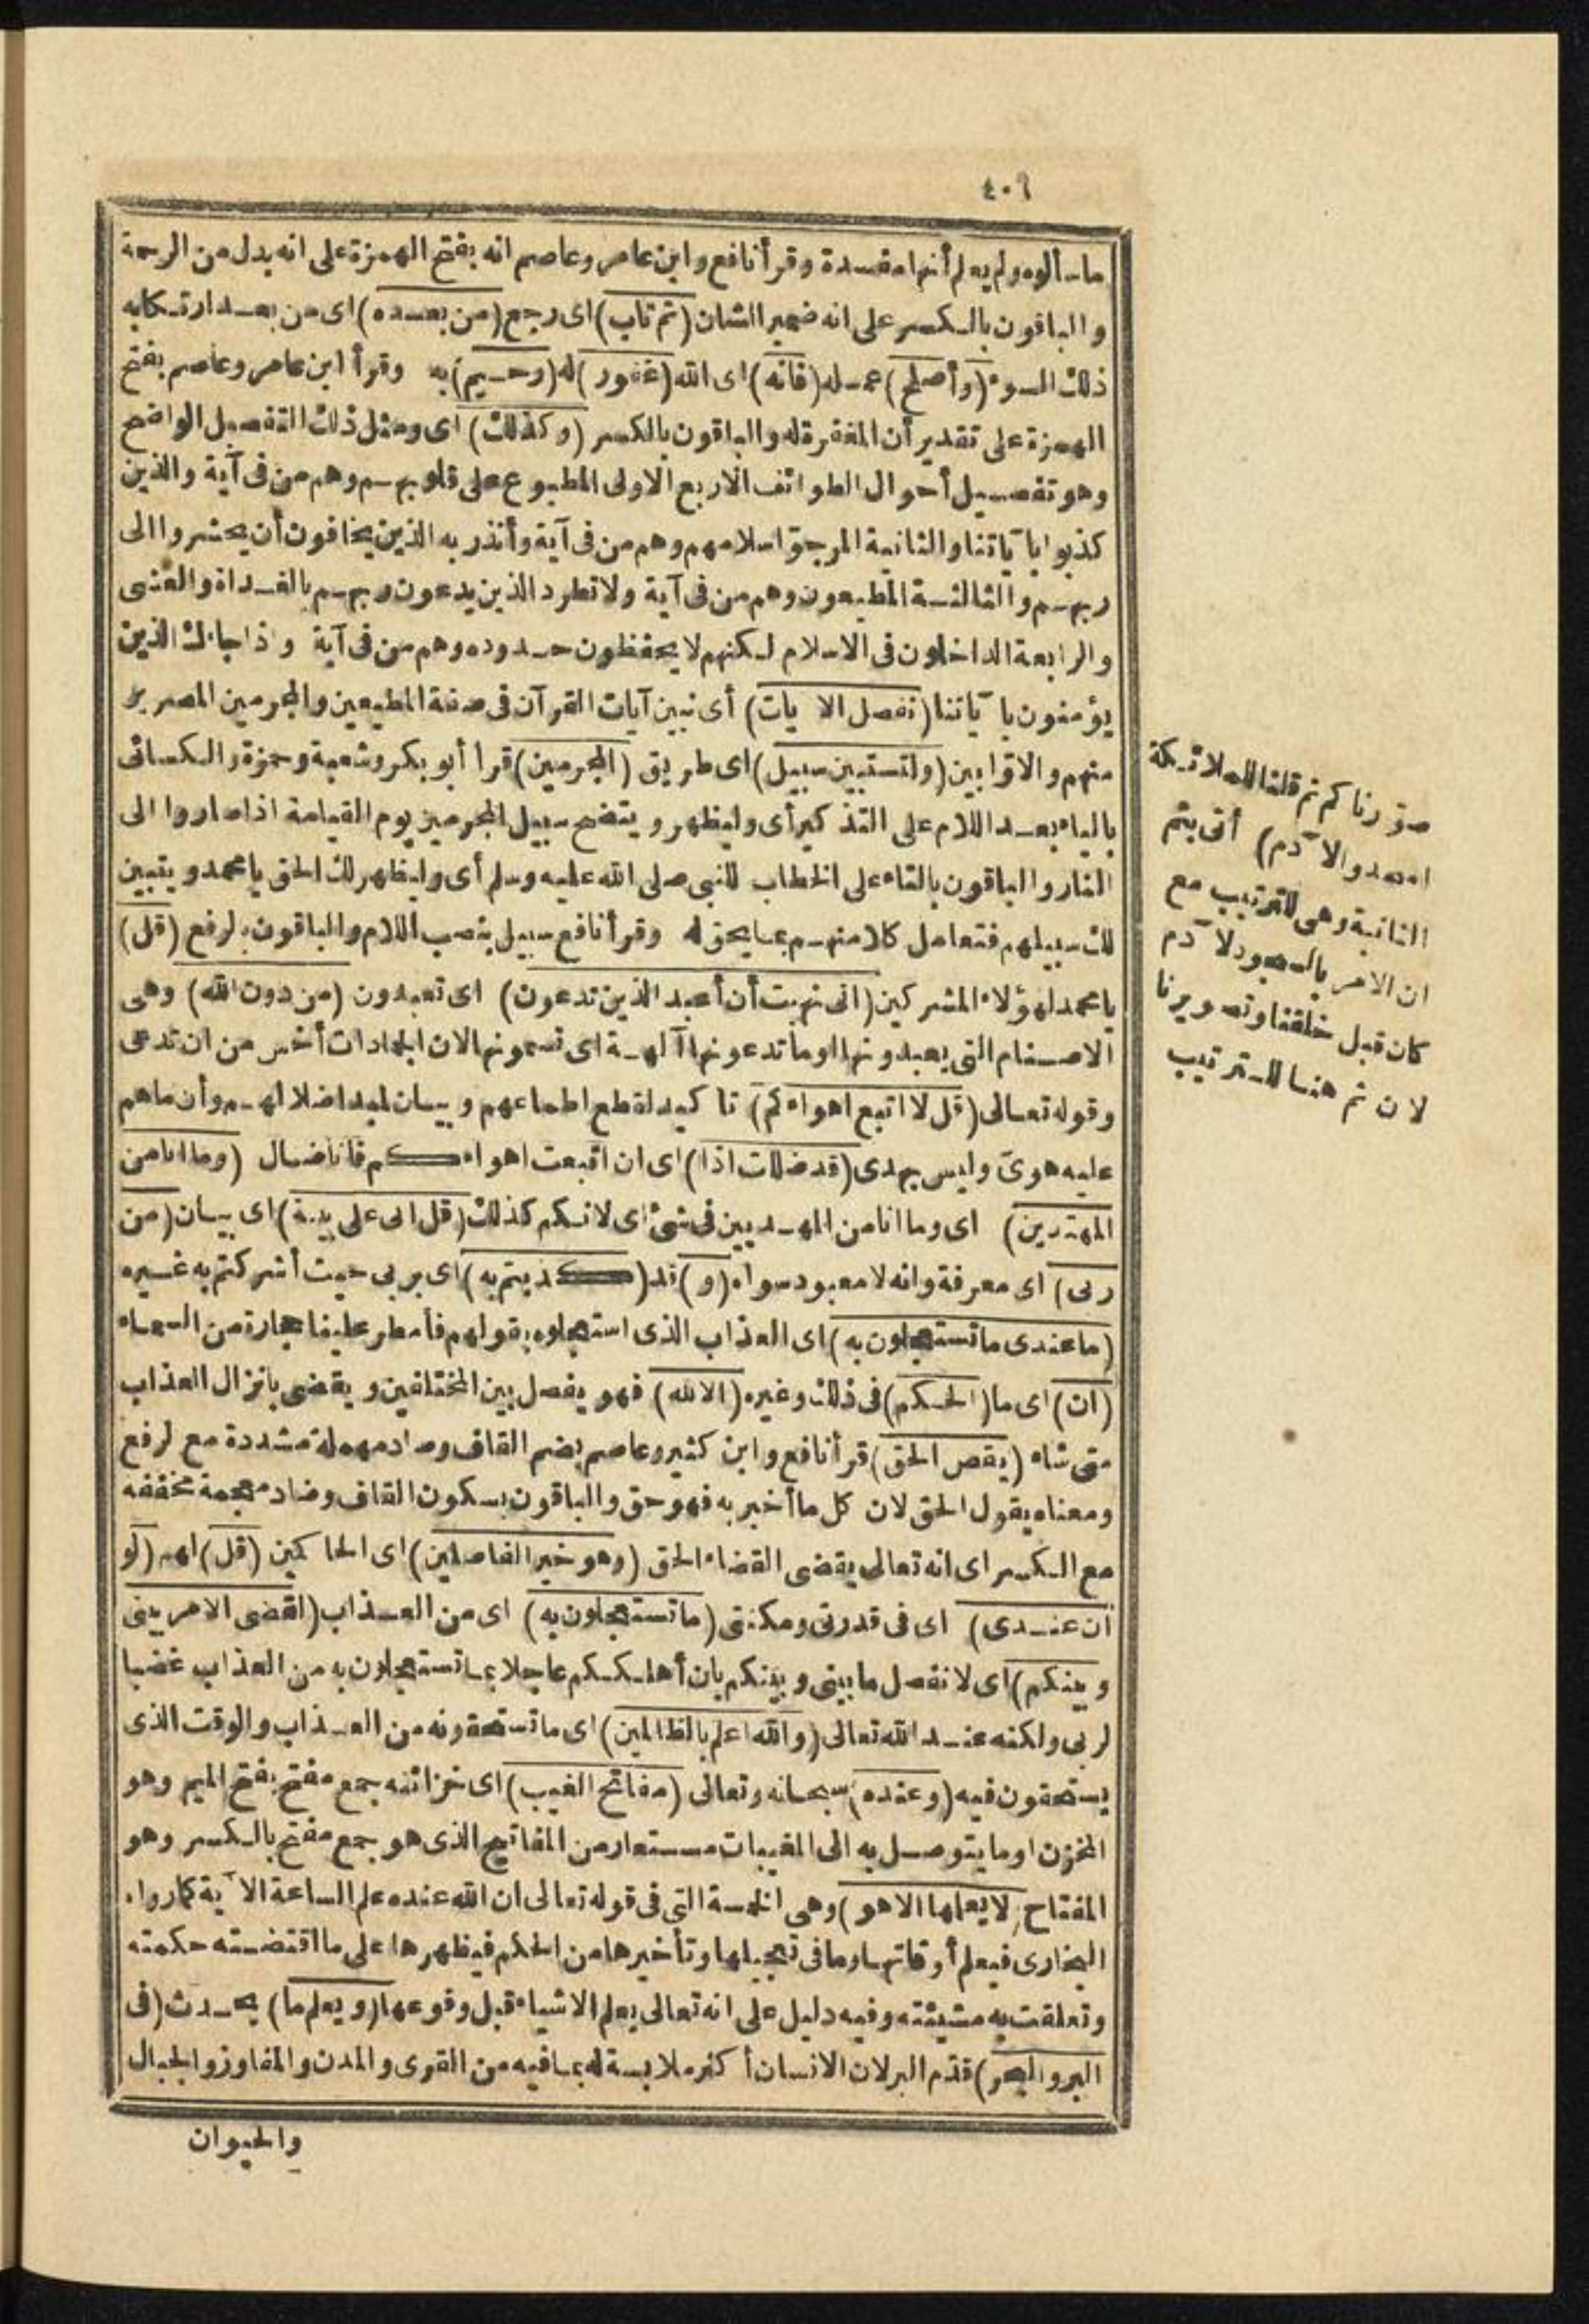 ٤٠٦
ماسألوه ولم يعلم أنها مفسدة وقرأ نافع وابن عامر وعاصم انه بفتح الهمزة على انه بدل من الرحمة
والباقون بالكسر على انه ضمير الشان (ثم تاب) اى رجع (من بعده) اى من بعد ارتكابه
ذلك السوء (وأصلح) عمله (فانه) اى الله (غفور) له (رحيم) به وقرأ ابن عامر وعاصم بفتح
الهمزة على تقدير أن المغفرة له والباقون بالكسر (وكذلك) اى ومثل ذلك التفصيل الواضح
وهو تفصيل أحوال الطوائف الاربع الاولى المطبوع على قلوبهم وهم من فى آية والذين
كذبوا بآياتنا والثانية المرجو اسلامهم وهم من فى آية وأنذر به الذين يخافون أن يحشروا الى
ربهم والثالثة المطيعون وهم من فى آية ولا تطرد الذين يدعون ربهم بالغداة والعشى
والرابعة الداخلون فى الاسلام لكنهم لا يحفظون حدوده وهم من فى آية واذا جاءك الذين
يؤمنون بآياتنا (نفصل الآيات) أى نبين آيات القرآن فى صفة المطيعين والمجرمين المصرين
منهم والاوابين (ولتستبين سبيل) اى طريق (المجرمين) قرأ أبو بكر وشعبة وحمزة والكسائى
بالياء بعد اللام على التذكير أى وليظهر ويتضح سبيل المجرمين يوم القيامة اذا صاروا الى
النار والباقون بالتاء على الخطاب للنبى صلى الله عليه وسلم أى وليظهر لك الحق يا محمد ويتبين
لك سبيلهم فتعامل كلا منهم بما يحق له وقرأ نافع سبيل بنصب اللام والباقون بالرفع (قل)
يا محمد لهؤلاء المشركين (انى نهيت أن أعبد الذين تدعون) اى تعبدون (من دون الله) وهى
الاصنام التى يعبدونها او ما تدعونها آلهة اى تسمونها لان الجمادات أخس من ان تدعى
وقوله تعالى (قل لا اتبع اهواءكم) تاكيد لقطع اطماعهم وبيان لمبدا ضلالهم وأن ما هم
عليه هوى وليس بهدى (قد ضللت اذا) اى ان اتبعت اهواءكم فانا ضال (وما انا من
المهتدين) اى وما انا من المهتديين فى شئ اى لانكم كذلك (قل انى على بينة) اى بيان (من
ربى) اى معرفة وانه لا معبود سواه (و) قد (كذبتم به) اى بربى حيث أشركتم به غيره
(ما عندى ما تستعجلون به) اى العذاب الذى استعجلوه بقولهم فأمطر علينا حجارة من السماء
(ان) اى ما (الحكم) فى ذلك وغيره (الا لله) فهو يفصل بين المختلفين ويقضى بانزال العذاب
متى شاء (يقص الحق) قرأ نافع وابن كثير وعاصم بضم القاف وصاد مهملة مشددة مع لرفع
ومعناه يقول الحق لان كل ما أخبر به فهو حق والباقون بسكون القاف وضاد معجمة مخففه
مع الكسر اى انه تعالى يقضى القضاء الحق (وهو خير الفاصلين) اى الحاكمين (قل) لهم (لو
أن عندى) اى فى قدرتى ومكنتى (ما تستعجلون به) اى من العذاب (لقضى الامر بينى
وبينكم) اى لانفصل ما بينى وبينكم بان أهلككم عاجلا بما تستعجلون به من العذاب غضبا
لربى ولكنه عند الله تعالى (والله اعلم بالظالمين) اى ما تستحقونه من العذاب والوقت الذى
يستحقون فيه (وعنده) سبحانه وتعالى (مفاتح الغيب) اى خزائنه جمع مفتح بفتح الميم وهو
المخزن او ما يتوصل به الى المغيبات مستعار من المفاتيح الذى هو جمع مفتح بالكسر وهو
المفتاح (لا يعلمها الا هو) وهى الخمسة التى فى قوله تعالى ان الله عنده علم الساعة الآية كما رواه
البخارى فيعلم أوقاتها وما فى تعجيلها وتأخيرها من الحكم فيظهرها على ما اقتضته حكمته
وتعلقت به مشيئته وفيه دليل على انه تعالى يعلم الاشياء قبل وقوعها (ويعلم ما) يحدث (فى
البر والبحر) قدّم البر لان الانسان أكثر ملابسة له بما فيه من القرى والمدن والمفاوز والجبال
والحيوان
صوّرناكم ثم قلنا للملائكة
اسجدوا لآدم) أتى بثم
الثانية وهى للترتيب مع
ان الامر بالسجود لآدم
كان قبل خلقنا وتصويرنا
لان ثم هنا للترتيب